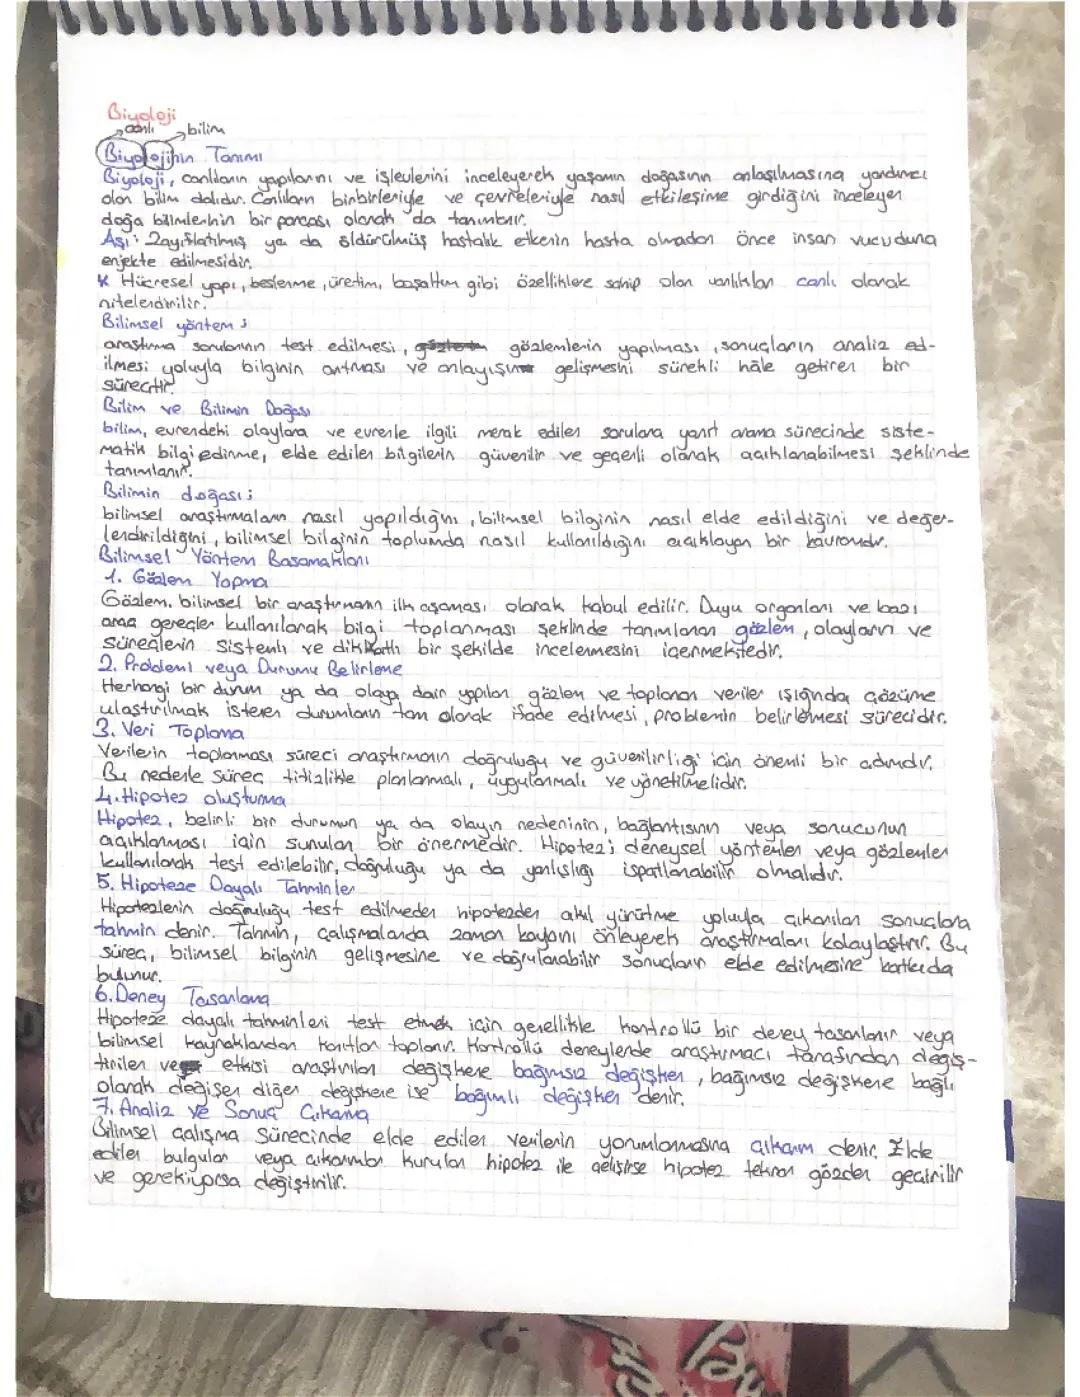 Biyoloji
canlı bilim
Biyolojinin Tanımı
Biyoloji, canlıların yapılarını ve işlevlerini inceleyerek yaşamın doğasının anlaşılmasına yardımcı
olan bilim dalıdır. Canlıların birbirleriyle ve çevreleriyle nasıl etkileşime girdiğini inceleyen
doğa bilimlerinin bir parçası olarak da tanımlanır.
Aşı: Zayıflatılmış ya da öldürülmüş hastalık etkenin hasta olmadan önce insan vucuduna
enjekte edilmesidir.
* Hücresel yapı, beslenme, üretim, boşaltım gibi özelliklere sahip olan varlıklar canlı olarak
nitelendirilir.
Bilimsel yöntem;
araştırma sorularının test edilmesi, gözlemlerin yapılması, sonuçların analiz ed-
ilmesi yoluyla bilginin artması ve anlayışın gelişmesini sürekli hâle getiren bir
süreçtir.
Bilim ve Bilimin Doğası
bilim, evrendeki olaylara ve evrenle ilgili merak edilen sorulara yanıt arama sürecinde siste-
matik bilgi edinme, elde edilen bilgilerin güvenilir ve geçerli olarak açıklanabilmesi şeklinde
tanımlanır.
Bilimin doğası;
bilimsel araştırmaların nasıl yapıldığını, bilimsel bilginin nasıl elde edildiğini ve değer-
lendirildiğini, bilimsel bilginin toplumda nasıl kullanıldığını açıklayan bir kavramdır.
Bilimsel Yöntem Basamakları
1. Gözlem Yapma
Gözlem, bilimsel bir araştırmanın ilk aşaması olarak kabul edilir. Duyu organları ve bazı
araç gereçler kullanılarak bilgi toplanması şeklinde tanımlanan gözlem, olayların ve
süreçlerin sistemli ve dikkatli bir şekilde incelenmesini içermektedir.
2. Problemi veya Durumu Belirleme
Herhangi bir durum ya da olaya dair yapılan gözlem ve toplanan veriler ışığında çözüme
ulaştırılmak istenen durumların tam olarak ifade edilmesi, problemin belirlenmesi sürecidir.
3. Veri Toplama
Verilerin toplanması süreci araştırmanın doğruluğu ve güvenilirliği için önemli bir adımdır.
Bu nedenle süreç titizlikle planlanmalı, uygulanmalı ve yönetilmelidir.
4. Hipotez oluşturma
Hipotez, belirli bir durumun ya da olayın nedeninin, bağlantısının veya sonucunun
açıklanması için sunulan bir önermedir. Hipotez; deneysel yöntemler veya gözlemler
kullanılarak test edilebilir, doğruluğu ya da yanlışlığı ispatlanabilir olmalıdır.
5. Hipoteze Dayalı Tahminler
Hipotezlerin doğruluğu test edilmeden hipotezden akıl yürütme yoluyla çıkarılan sonuçlara
tahmin denir. Tahmin, çalışmalarda zaman kaybını önleyerek araştırmaları kolaylaştırır. Bu
süreç, bilimsel bilginin gelişmesine ve doğrulanabilir sonuçların elde edilmesine katkıda
bulunur.
6. Deney Tasarlama
Hipoteze dayalı tahminleri test etmek için genellikle kontrollü bir deney tasarlanır veya
bilimsel kaynaklardan kanıtlar toplanır. Kontrollü deneylerde araştırmacı tarafından değiş-
tirilen ve etkisi araştırılan değişkene bağımsız değişken, bağımsız değişkene bağlı
olarak değişen diğer değişkene ise bağımlı değişken denir.
7. Analiz ve Sonuç Çıkarma
Bilimsel çalışma sürecinde elde edilen verilerin yorumlanmasına çıkarım denir. Elde
edilen bulgular veya çıkarımlar kurulan hipotez ile çelişirse hipotez tekrar gözden geçirilir
ve gerekiyorsa değiştirilir.